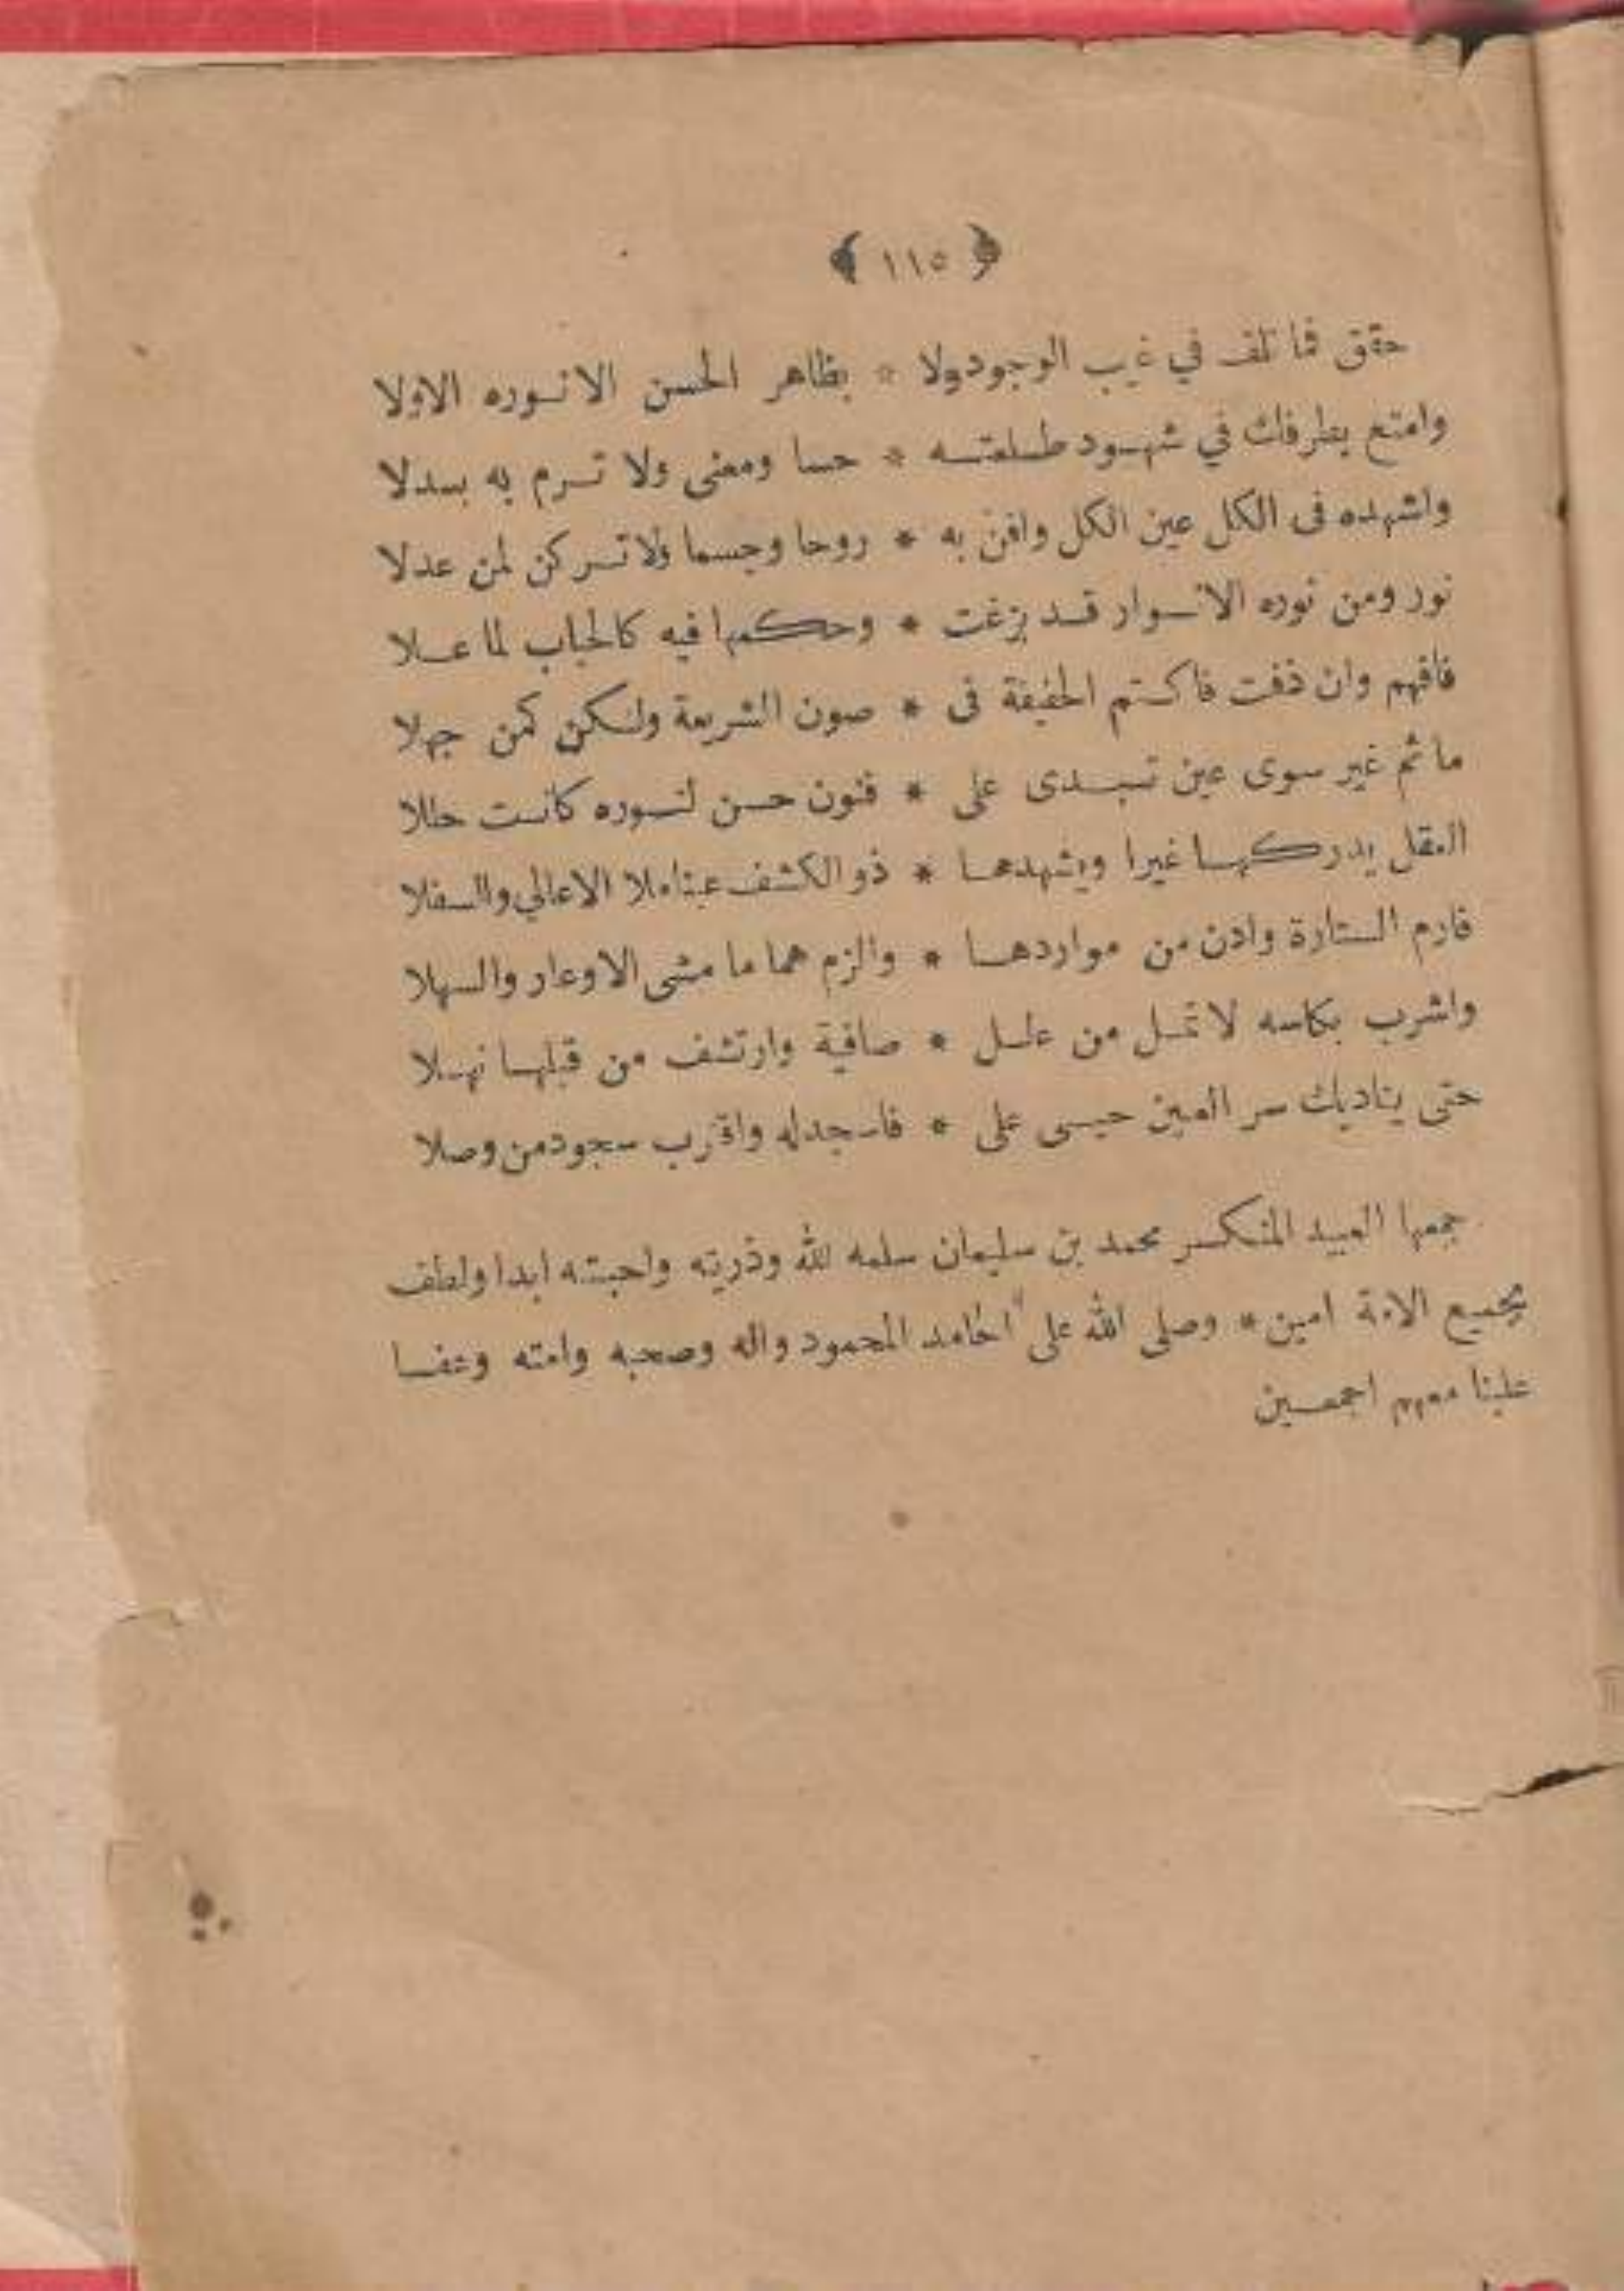 ﴿ ١١٥ ﴾
حقق فما تلف في غيب الوجود ولا * بظاهر الحسن الا نوره الاولا
وامتع بطرفك في شهود طلعته * حسا ومعنى ولا ترم به بدلا
واشهده فى الكل عين الكل وافن به * روحا وجسما ولا تركن لمن عدلا
نور ومن نوره الانوار قد بزغت * وحكمها فيه كالحباب لما علا
فافهم وان ذقت فاكتم الحقيقة فى * صون الشريعة ولكن كمن جهلا
ما ثم غير سوى عين تبدى على * فنون حسن لنوره كانت حللا
العقل يدركها غيرا ويشهدها * ذو الكشف عينا ملا الاعالي والسفلا
فارم الستارة وادن من مواردها * والزم هما ما مشى الاوعار والسهلا
واشرب بكاسه لا تمل من علل * صافية وارتشف من قبلها نهلا
حتى يناديك سر العين حيسى على * فاسجد له واقترب سجود من وصلا
جمعها العبيد المنكسر محمد بن سليمان سلمه لله وذريته واحبته ابدا ولطف
بجميع الامة امين * وصلى الله على الحامد المحمود واله وصحبه وامته وعفا
علينا معهم اجمعين